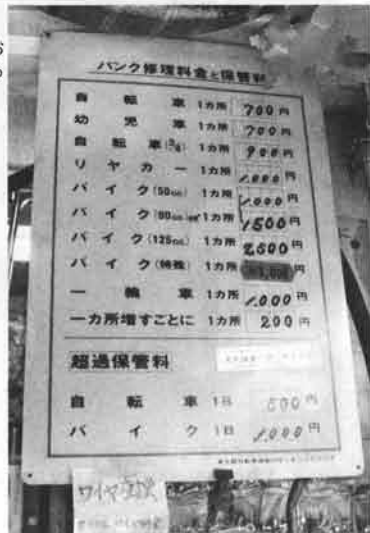 パンク修理料金と保管料
自転車 1カ所 700円
幼児車 1カ所 700円
自転車 1カ所 900円
リヤカー 1カ所 1.000円
バイク(50cc) 1カ所 1.000円
バイク 1カ所 1500円
バイク(125cc) 1カ所 2,500円
バイク(特殊) 1カ所 円
一輪車 1カ所 1.000円
一カ所増すごとに 1カ所 200円
超過保管料
自転車 1日 500円
バイク 1日 1.000円
ワイヤ交換